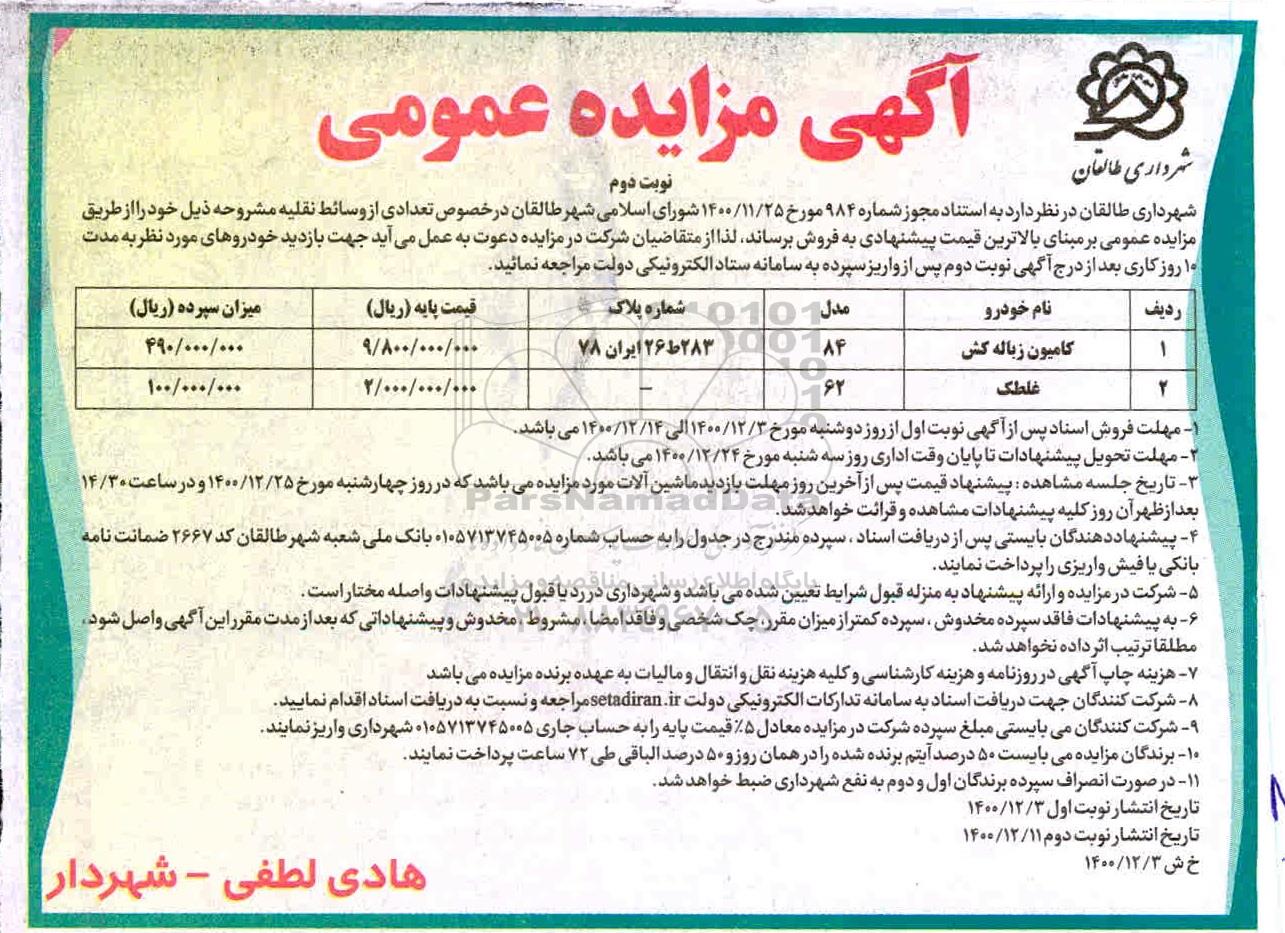 آگهی مزایده عمومی
شهرداری طالقان
نوبت دوم
شهرداری طالقان در نظر دارد به استناد مجوز شماره ۹۸۴ مورخ ۱۴۰۰/۱۱/۲۵ شورای اسلامی شهر طالقان در خصوص تعدادی از وسائط نقلیه مشروحه ذیل خود را از طریق
مزایده عمومی بر مبنای بالاترین قیمت پیشنهادی به فروش برساند، لذا از متقاضیان شرکت در مزایده دعوت به عمل می آید جهت بازدید خودروهای مورد نظر به مدت
۱۰ روز کاری بعد از درج آگهی نوبت دوم پس از واریز سپرده به سامانه ستاد الکترونیکی دولت مراجعه نمائید.
ردیف نام خودرو مدل شماره پلاک قیمت پایه (ریال) میزان سپرده (ریال)
۱ کامیون زباله کش ۸۴ ۲۸۳ط۲۶ ایران ۷۸ ۹/۸۰۰/۰۰۰/۰۰۰ ۴۹۰/۰۰۰/۰۰۰
۲ غلطک ۶۲ – ۲/۰۰۰/۰۰۰/۰۰۰ ۱۰۰/۰۰۰/۰۰۰
۱- مهلت فروش اسناد پس از آگهی نوبت اول از روز دوشنبه مورخ ۱۴۰۰/۱۲/۳ الی ۱۴۰۰/۱۲/۱۴ می باشد.
۲- مهلت تحویل پیشنهادات تا پایان وقت اداری روز سه شنبه مورخ ۱۴۰۰/۱۲/۲۴ می باشد.
۳- تاریخ جلسه مشاهده : پیشنهاد قیمت پس از آخرین روز مهلت بازدید ماشین آلات مورد مزایده می باشد که در روز چهارشنبه مورخ ۱۴۰۰/۱۲/۲۵ و در ساعت ۱۴/۳۰
بعد از ظهر آن روز کلیه پیشنهادات مشاهده و قرائت خواهد شد.
۴- پیشنهاد دهندگان بایستی پس از دریافت اسناد ، سپرده مندرج در جدول را به حساب شماره ۰۱۰۵۷۱۳۷۴۵۰۰۵ بانک ملی شعبه شهر طالقان کد ۲۶۶۷ ضمانت نامه
بانکی یا فیش واریزی را پرداخت نمایند.
۵- شرکت در مزایده و ارائه پیشنهاد به منزله قبول شرایط تعیین شده می باشد و شهرداری در رد یا قبول پیشنهادات واصله مختار است .
۶- به پیشنهادات فاقد سپرده مخدوش ، سپرده کمتر از میزان مقرر، چک شخصی و فاقد امضا ، مشروط ، مخدوش و پیشنهاداتی که بعد از مدت مقرر این آگهی واصل شود ،
مطلقا ترتیب اثر داده نخواهد شد.
۷- هزینه چاپ آگهی در روزنامه و هزینه کارشناسی و کلیه هزینه نقل و انتقال و مالیات به عهده برنده مزایده می باشد
۸- شرکت کنندگان جهت دریافت اسناد به سامانه تدارکات الکترونیکی دولت setadiran.ir مراجعه و نسبت به دریافت اسناد اقدام نمایید.
۹- شرکت کنندگان می بایستی مبلغ سپرده شرکت در مزایده معادل ۵٪ قیمت پایه را به حساب جاری ۰۱۰۵۷۱۳۷۴۵۰۰۵ شهرداری واریز نمایند.
۱۰- برندگان مزایده می بایست ۵۰ درصد آیتم برنده شده را در همان روز و ۵۰ درصد الباقی طی ۷۲ ساعت پرداخت نمایند.
۱۱- در صورت انصراف سپرده برندگان اول و دوم به نفع شهرداری ضبط خواهد شد.
تاریخ انتشار نوبت اول ۱۴۰۰/۱۲/۳
تاریخ انتشار نوبت دوم ۱۴۰۰/۱۲/۱۱
خ ش ۱۴۰۰/۱۲/۳
هادی لطفی – شهردار
ParsNamadData
پایگاه اطلاع رسانی مناقصه و مزایده